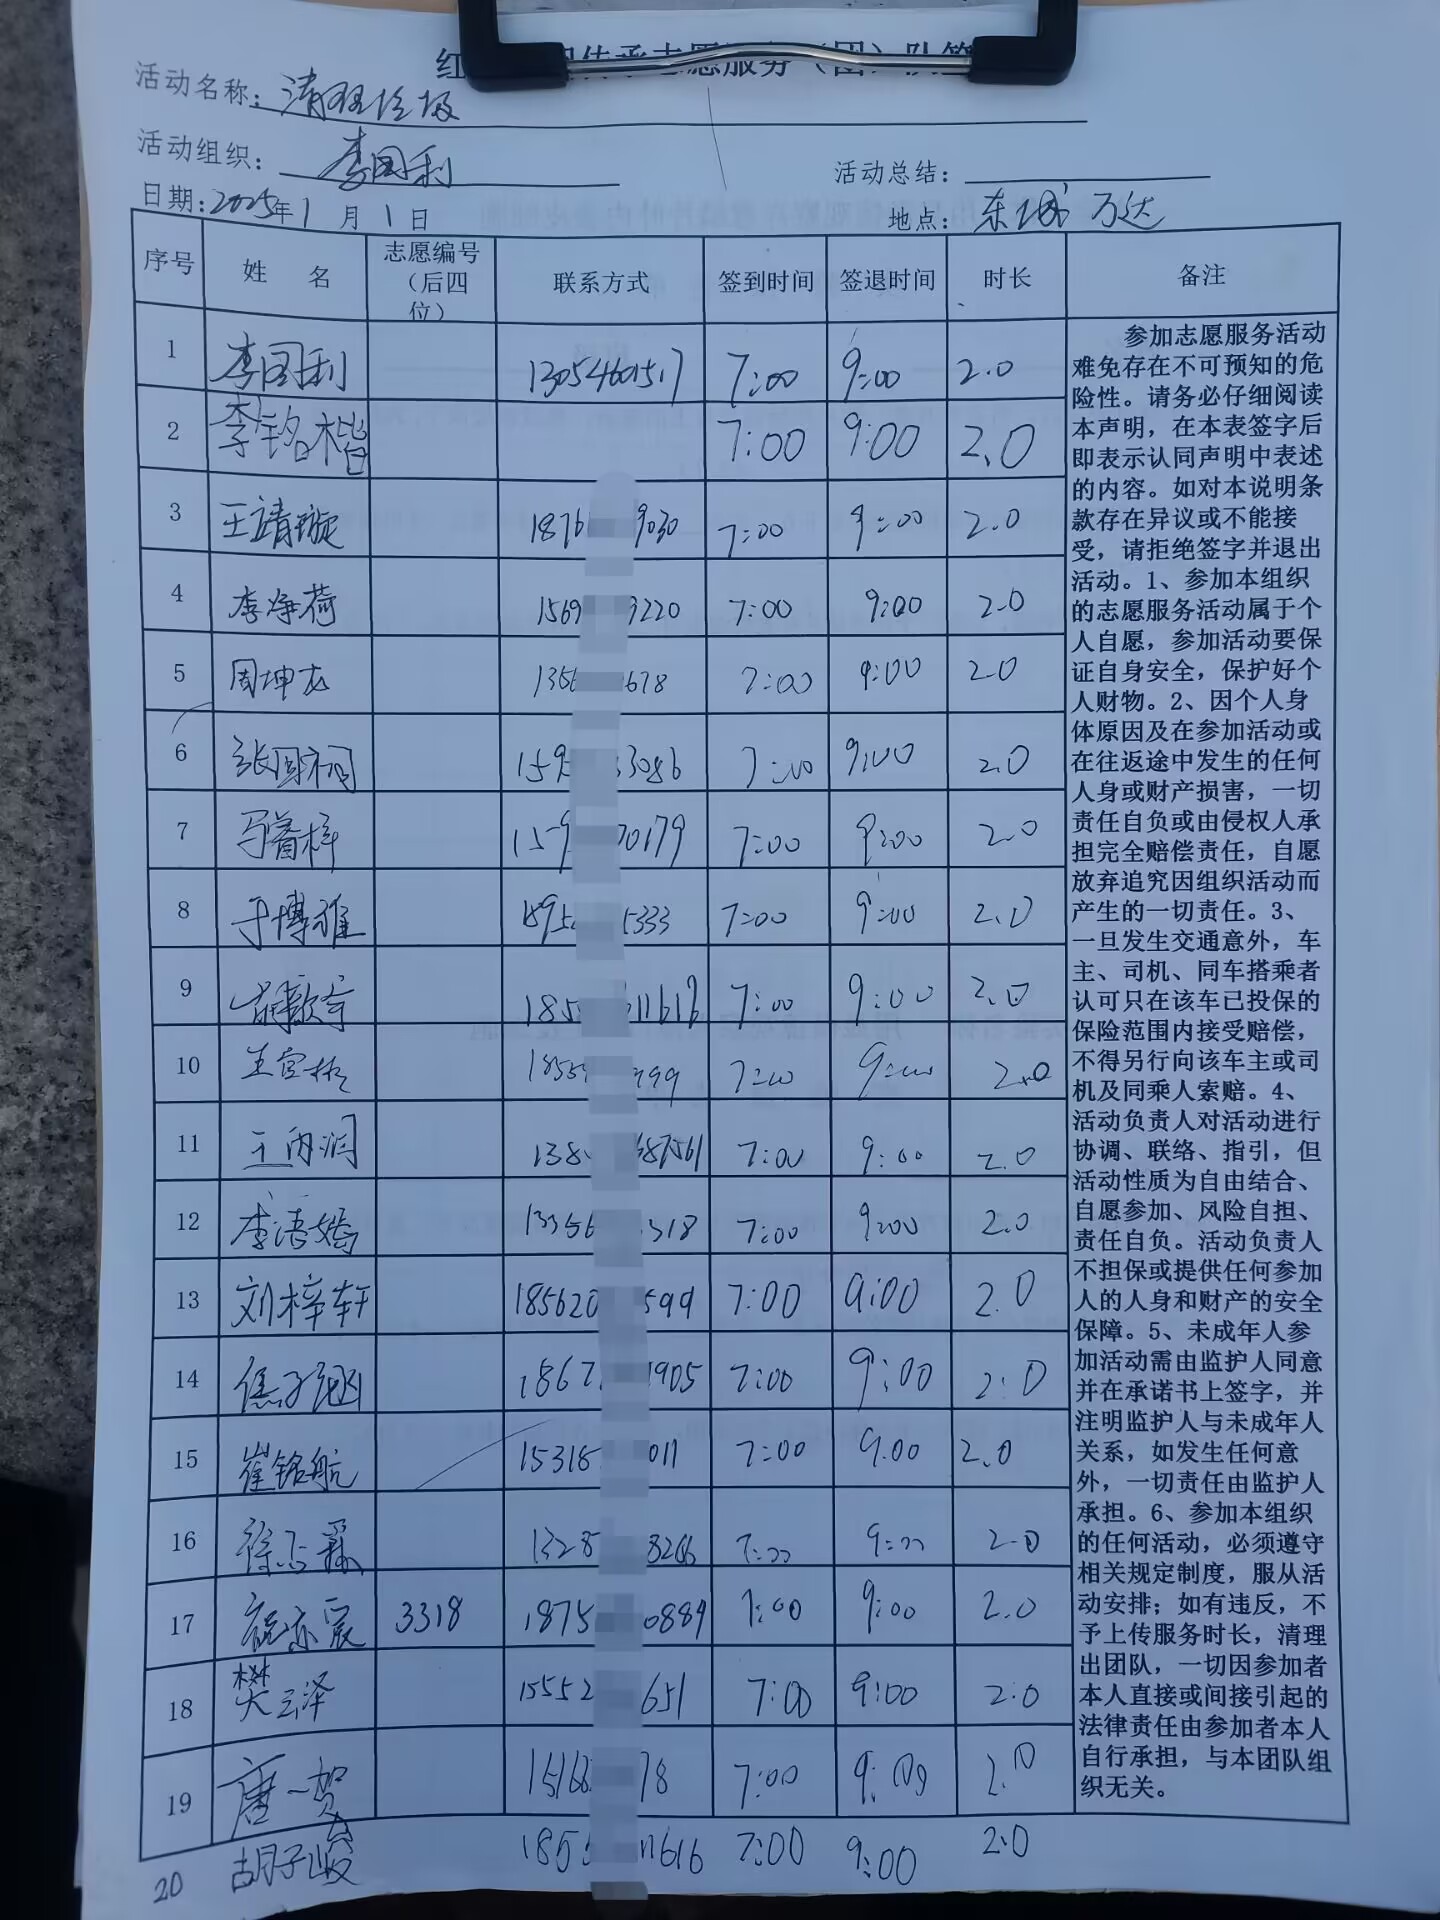 传承志愿服务（团）队签
活动名称：清理垃圾
活动组织：李国利
活动总结：
日期：2025年1月1日 地点：东城万达
序号 姓 名 志愿编号（后四位） 联系方式 签到时间 签退时间 时长 备注
1 李国利 13054601517 7:00 9:00 2.0
2 李铭楷 7:00 9:00 2.0
3 王靖璇 1876 9030 7:00 9:00 2.0
4 李净荷 1569 3220 7:00 9:00 2.0
5 周坤龙 1356 678 7:00 9:00 2.0
6 张国桐 159 3086 7:00 9:00 2.0
7 马睿梓 159 70179 7:00 9:00 2.0
8 于博雅 1595 5333 7:00 9:00 2.0
9 胡歆宇 185 11616 7:00 9:00 2.0
10 王宣 1855 999 7:00 9:00 2.0
11 王丙润 138 687561 7:00 9:00 2.0
12 李语嫣 13356 318 7:00 9:00 2.0
13 刘梓轩 185620 599 7:00 9:00 2.0
14 焦子涵 1867 1905 7:00 9:00 2.0
15 崔铭航 15318 011 7:00 9:00 2.0
16 徐 1328 3266 7:00 9:00 2.0
17 祝亦宸 3318 1875 0889 7:00 9:00 2.0
18 樊云泽 15552 651 7:00 9:00 2.0
19 唐一贺 15168 78 7:00 9:00 2.0
20 胡子骏 185 11616 7:00 9:00 2.0
参加志愿服务活动
难免存在不可预知的危
险性。请务必仔细阅读
本声明，在本表签字后
即表示认同声明中表述
的内容。如对本说明条
款存在异议或不能接
受，请拒绝签字并退出
活动。1、参加本组织
的志愿服务活动属于个
人自愿，参加活动要保
证自身安全，保护好个
人财物。2、因个人身
体原因及在参加活动或
在往返途中发生的任何
人身或财产损害，一切
责任自负或由侵权人承
担完全赔偿责任，自愿
放弃追究因组织活动而
产生的一切责任。3、
一旦发生交通意外，车
主、司机、同车搭乘者
认可只在该车已投保的
保险范围内接受赔偿，
不得另行向该车主或司
机及同乘人索赔。4、
活动负责人对活动进行
协调、联络、指引，但
活动性质为自由结合、
自愿参加、风险自担、
责任自负。活动负责人
不担保或提供任何参加
人的人身和财产的安全
保障。5、未成年人参
加活动需由监护人同意
并在承诺书上签字，并
注明监护人与未成年人
关系，如发生任何意
外，一切责任由监护人
承担。6、参加本组织
的任何活动，必须遵守
相关规定制度，服从活
动安排；如有违反，不
予上传服务时长，清理
出团队，一切因参加者
本人直接或间接引起的
法律责任由参加者本人
自行承担，与本团队组
织无关。